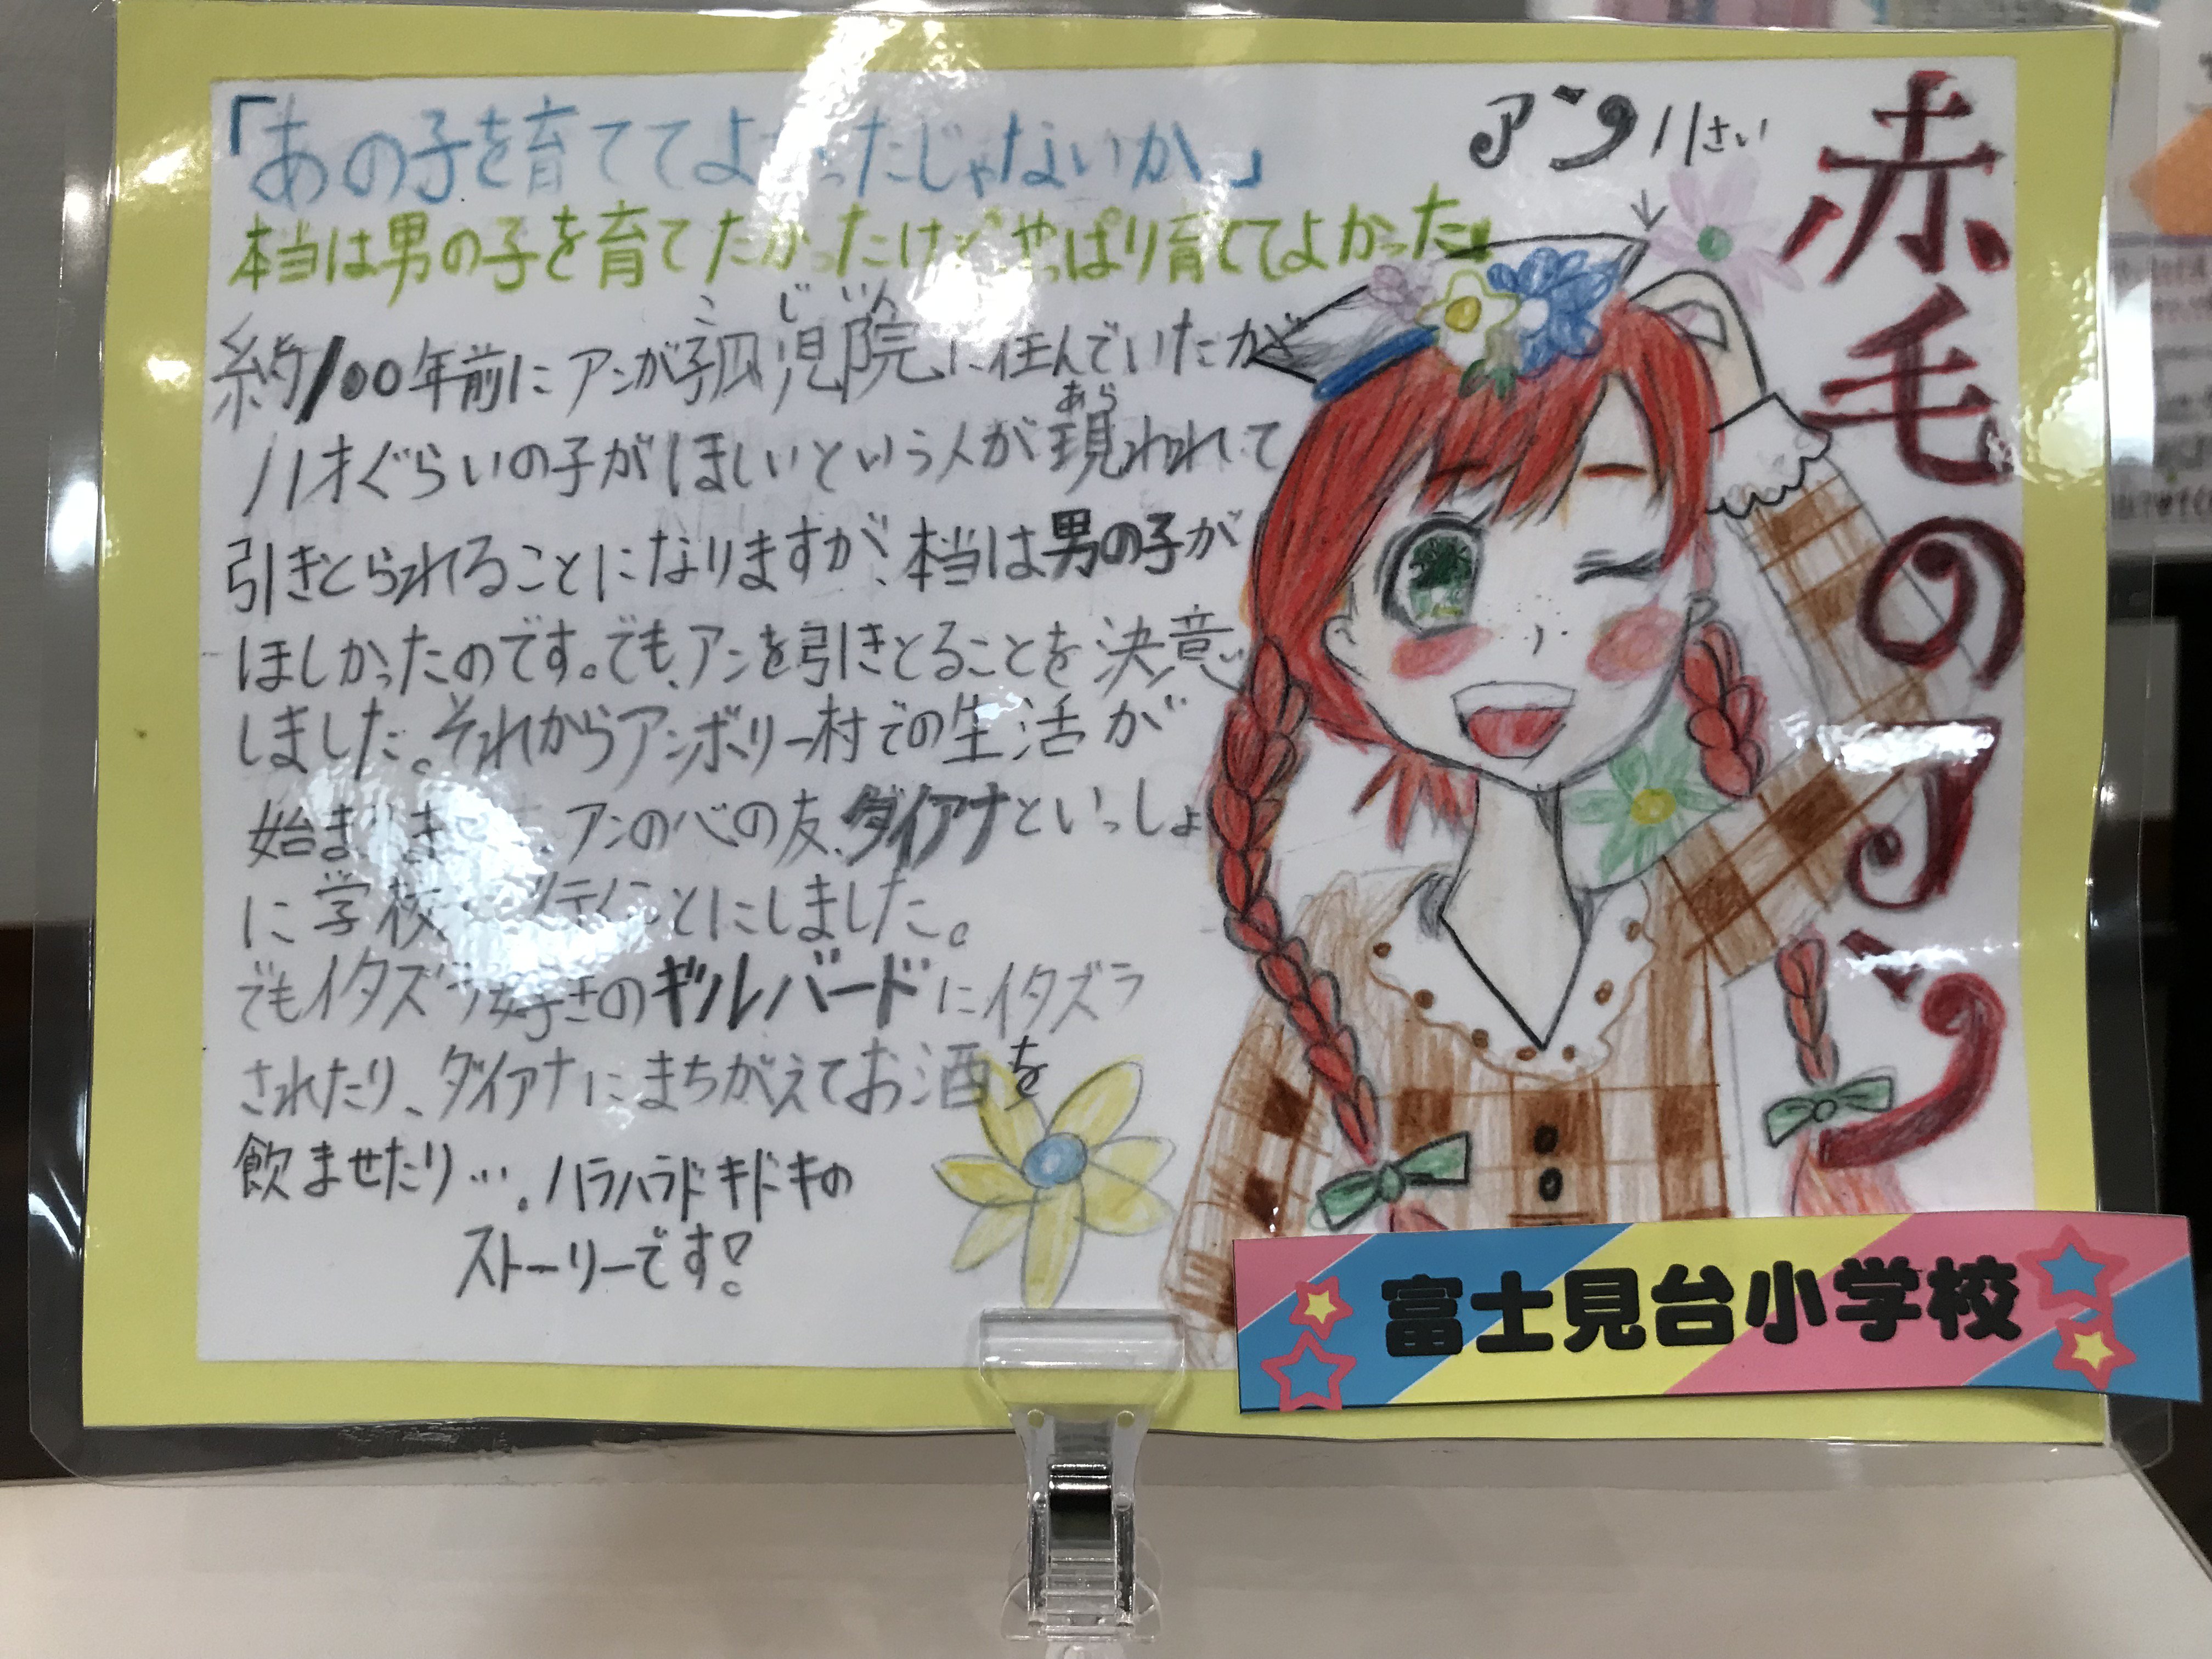 赤毛のアン
アン 11さい
「あの子を育ててよかったじゃないか」
本当は男の子を育てたかったけどやっぱり育ててよかった
約100年前にアンが孤児院に住んでいたが
こじいん
11才ぐらいの子がほしいという人が現われて
あら
引きとられることになりますが、本当は男の子が
ほしかったのです。でも、アンを引きとることを決意
しました。それからアンボリー村での生活が
始まりま アンの心の友、ダイアナといっしょ
に学校 行くことにしました。
でもイタズラ好きのギルバードにイタズラ
されたり、ダイアナにまちがえてお酒を
飲ませたり…。ハラハラドキドキの
ストーリーです!
富士見台小学校